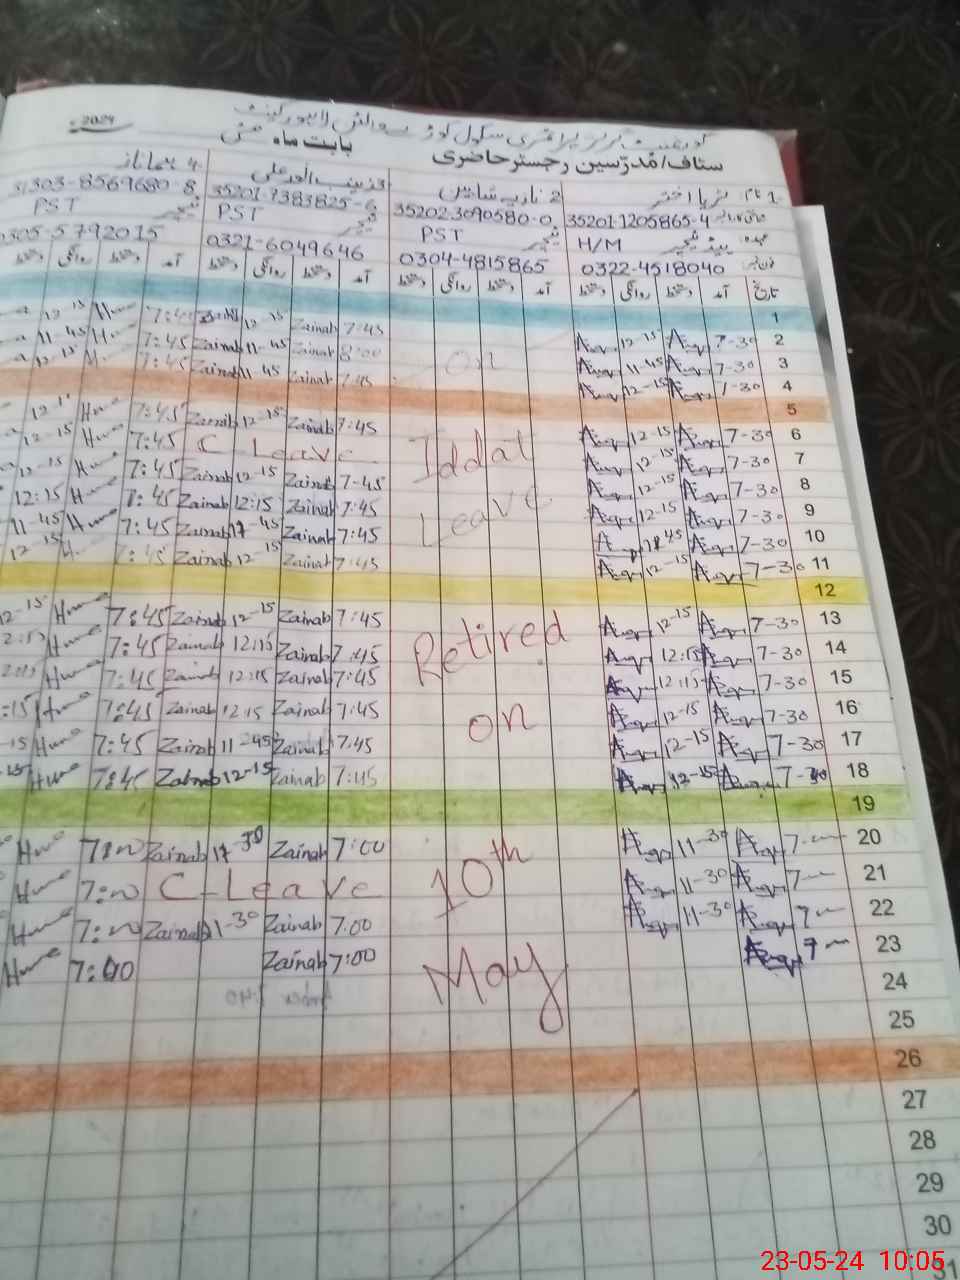 2024
بابت ماہ مئی
سٹاف/مُدرّسین رجسٹر حاضری
1 نام ثریا اختر 2 نادیہ شاہین 3 زینب انور علی 4 ہما ناز
35201-1205865-4 35202-3090580-0 35201-7383825-6 31303-8569680-8
عہدہ ہیڈ ٹیچر H/M ٹیچر PST ٹیچر PST ٹیچر PST
0322-4518040 0304-4815865 0321-6049646 0305-5792015
تاریخ آمد دستخط روانگی دستخط آمد دستخط روانگی دستخط آمد دستخط روانگی دستخط آمد دستخط روانگی دستخط
1
12-15 Huma 7:45 12-15 Zainab 7:45
11-45 7:45 Zainab 11-45 Zainab 8:00 On 12-15 7-30 2
12-15 7:45 Zainab 11-45 Zainab 7:45 11-45 7-30 3
12-15 7-30 4
5
Huma 7:45 Zainab 12-15 Zainab 7:45 12-15 7-30 6
12-15 Huma 7:45 C-Leave Iddat 12-15 7-30 7
12-15 Huma 7:45 Zainab 12-15 Zainab 7-45 12-15 7-30 8
12:15 Huma 7:45 Zainab 12:15 Zainab 7:45 Leave 12-15 7-30 9
11-45 Huma 7:45 Zainab Zainab 7:45 7-30 10
12-15 7:45 Zainab 12-15 Zainab 7:45 12-15 7-30 11
12
12-15 Huma 7:45 Zainab 12-15 Zainab 7:45 Retired 12-15 7-30 13
Huma 7:45 Zainab 12:15 Zainab 7:45 12:15 7-30 14
Huma 7:45 Zainab 12:15 Zainab 7:45 12:15 7-30 15
:15 Huma 7:45 Zainab 12:15 Zainab 7:45 on 12-15 7-30 16
-15 Huma 7:45 Zainab 11-45 Zainab 7:45 12-15 7-30 17
Huma 7:45 Zainab 12-15 Zainab 7:45 12-15 7-30 18
19
Huma 7:00 Zainab Zainab 7:00 10th 11-30 7- 20
Huma 7:00 C-Leave 11-30 7- 21
Huma 7:00 Zainab 11-30 Zainab 7.00 11-30 7- 22
Huma 7:00 Zainab 7:00 May 7- 23
24
25
26
27
28
29
30
31
23-05-24 10:05